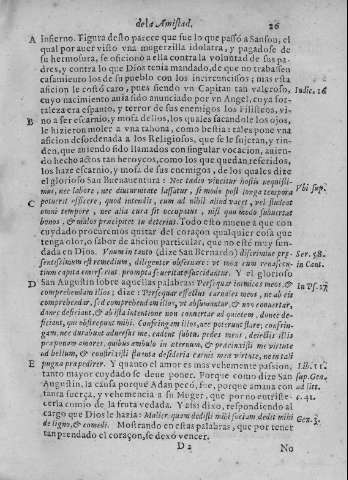 de la Amistad. 26
A infierno. Figura desto parece que fue lo que passò a Sanson, el
qual por auer visto vna mugerzilla idolatra, y pagadose de
su hermosura, se oficionò a ella contra la voluntad de sus pa-
dres, y contra lo que Dios tenia mandado, de que no trabassen
casamientos los de su pueblo con los incircuncisos; mas esta
aficion le costò caro, pues siendo vn Capitan tan valeroso, Iudic. 16
cuyo nacimiento auia sido anunciado por vn Angel, cuya for-
taleza era espanto, y terror de sus enemigos los Filisteos, vi-
B no a ser escarnio, y mofa dellos, los quales sacandole los ojos,
le hizieron moler a vna tahona, como bestia: tales pone vna
aficion desordenada a los Religiosos, que se le sujetan, y rin-
den, que auiendo sido llamados con singular vocacion, auien-
do hecho actos tan heroycos, como los que quedan referidos,
los haze escarnio, y mofa de sus enemigos, de los quales dize
el glorioso San Buenauentura: Nec tades vincitur hostis nequissi-
mus, nec labore, nec diuturnitate lassatur, si modo post longa tempora Vbi sup.
C poterit efficere, quod intendit, cum ad nihil aliud vacet, vel studeat
omni tempore, nec alia cura sit occupatus, nisi quo modo subuertat
bonos, & malos precipites in deterius. Todo esto mueue a que con
cuydado procuremos quitar del coraçon qualquier cosa que
tenga olor, o sabor de aficion particular, que no estè muy fun-
dada en Dios. Vnum in tanto (dize San Bernardo) discrimine pre- Ser. 58.
sentissimum est remedium, diligenter obseruare: vt mox cum renascen- in Cant.
tium capita emerserint prompta seueritate succidantur. Y el glorioso
D San Augustin sobre aquellas palabras: Persequar inimicos meos, & In Ps. 17
comprehendam illos; dize: Persequar affectus carnales meos, nec ab eis
comprehendar, sed comprehendam illos, vt absumantur, & non conuertar,
donec deficiant, & ab ista intentione non conuertar ad quietem, donec de-
ficiant, qui obstrepunt mihi. Confringam illos, nec poterunt stare; confrin-
gam, nec durabunt aduersus me, cadent subtus pedes meos, deiectis illis
præponam amores, quibus ambulo in æternum, & præcinxisti me virtute
ad bellum, & constrinxisti fluxa desideria carnis meæ virtute, ne in tali
E pugna præpedirer. Y quanto el amor es mas vehemente passion, Lib. 11.
tanto mayor cuydado se deue poner. Porque como dize San sup. Gen.
Augustin, la causa porque Adan pecò, fue, porque amaua con ad litt.
tanta fuerça, y vehemencia a su Muger, que por no entriste- c. 42.
cerla comio de la fruta vedada. Y assi dixo, respondiendo al
cargo que Dios le hazia: Mulier quam dedisti mihi sociam dedit mihi Gen. 3.
de ligno, & comedi. Mostrando en estas palabras, que por tener
tan prendado el coraçon, se dexò vencer.
D 2 No